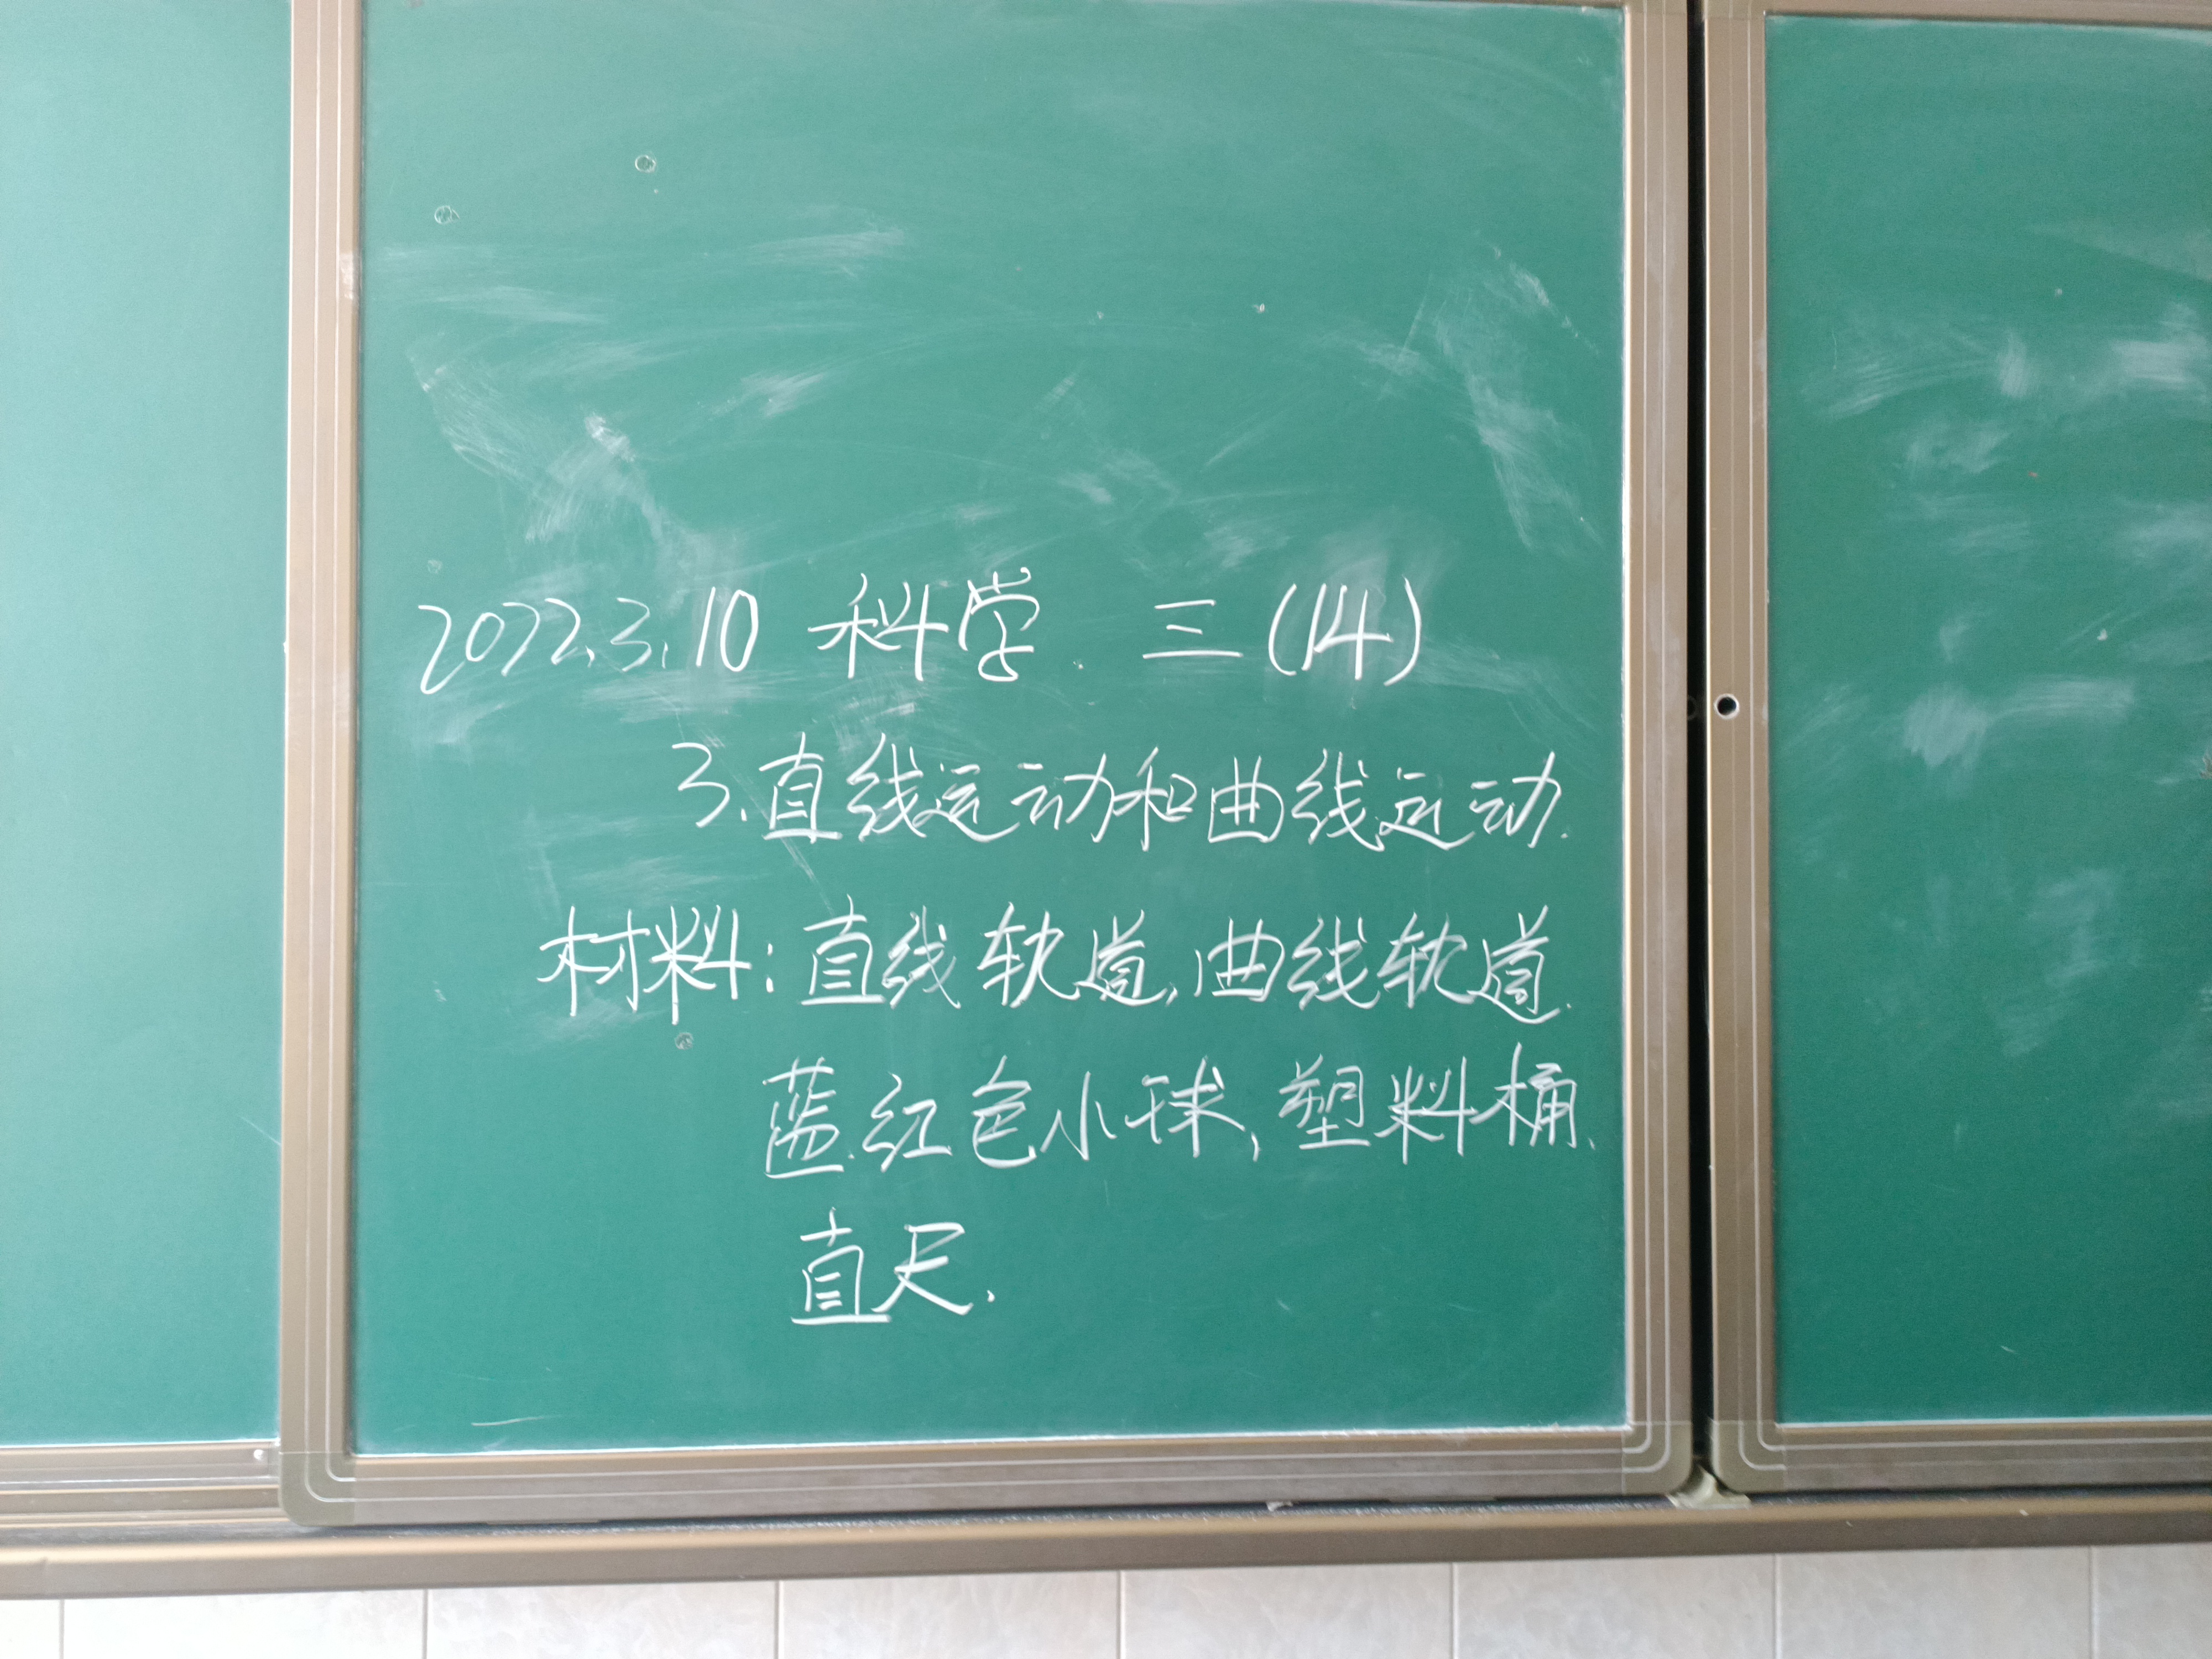 2022.3.10 科学 三(14)
3.直线运动和曲线运动.
材料:直线轨道,曲线轨道.
蓝.红色小球,塑料桶、
直尺.